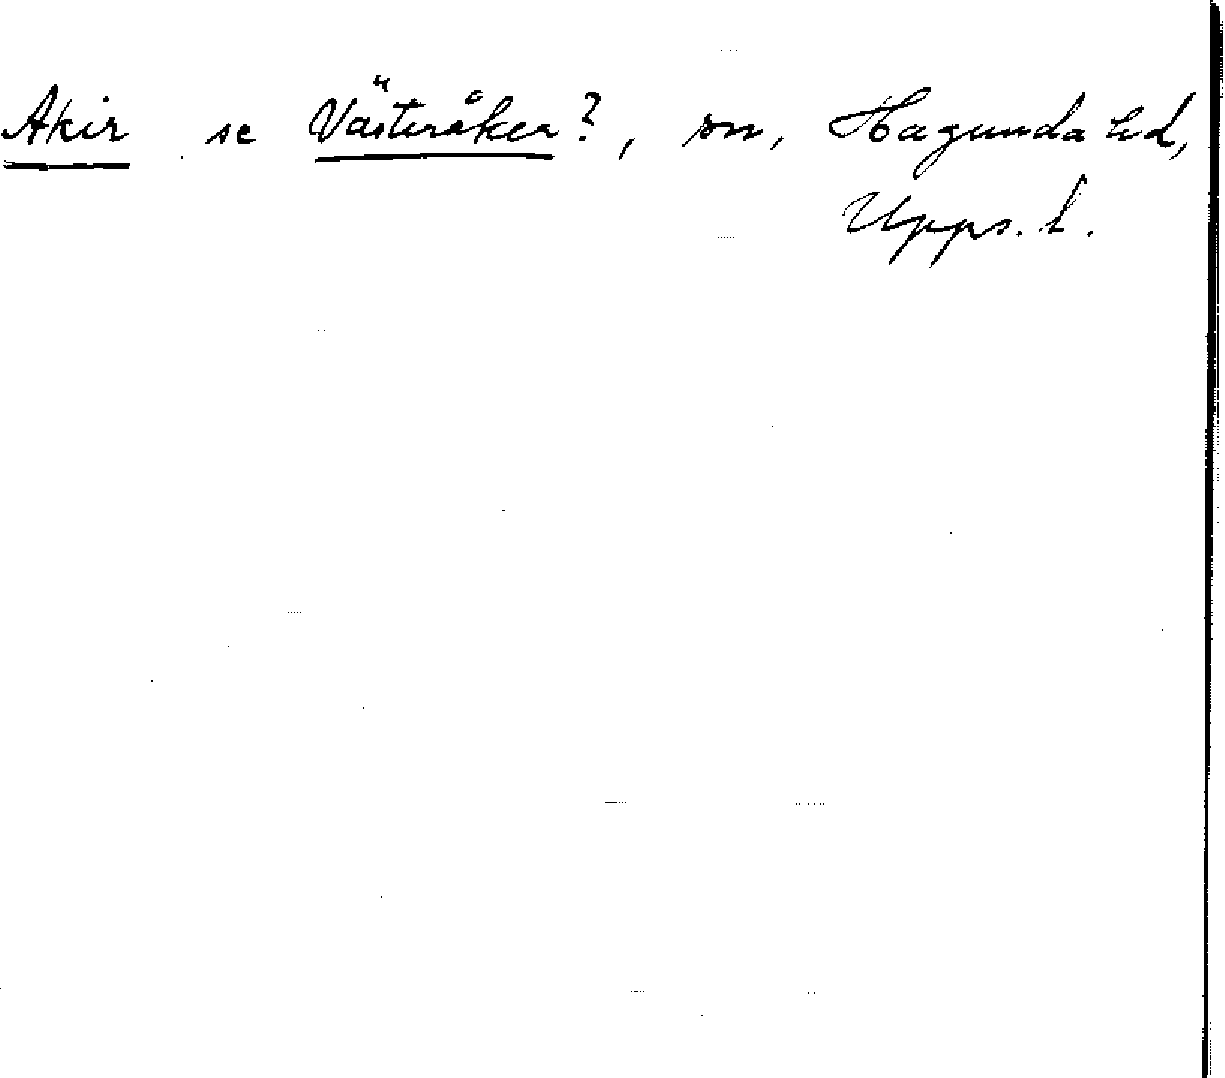 Akir se Västeråker?, sn, Hagunda hd,
Upps. l.